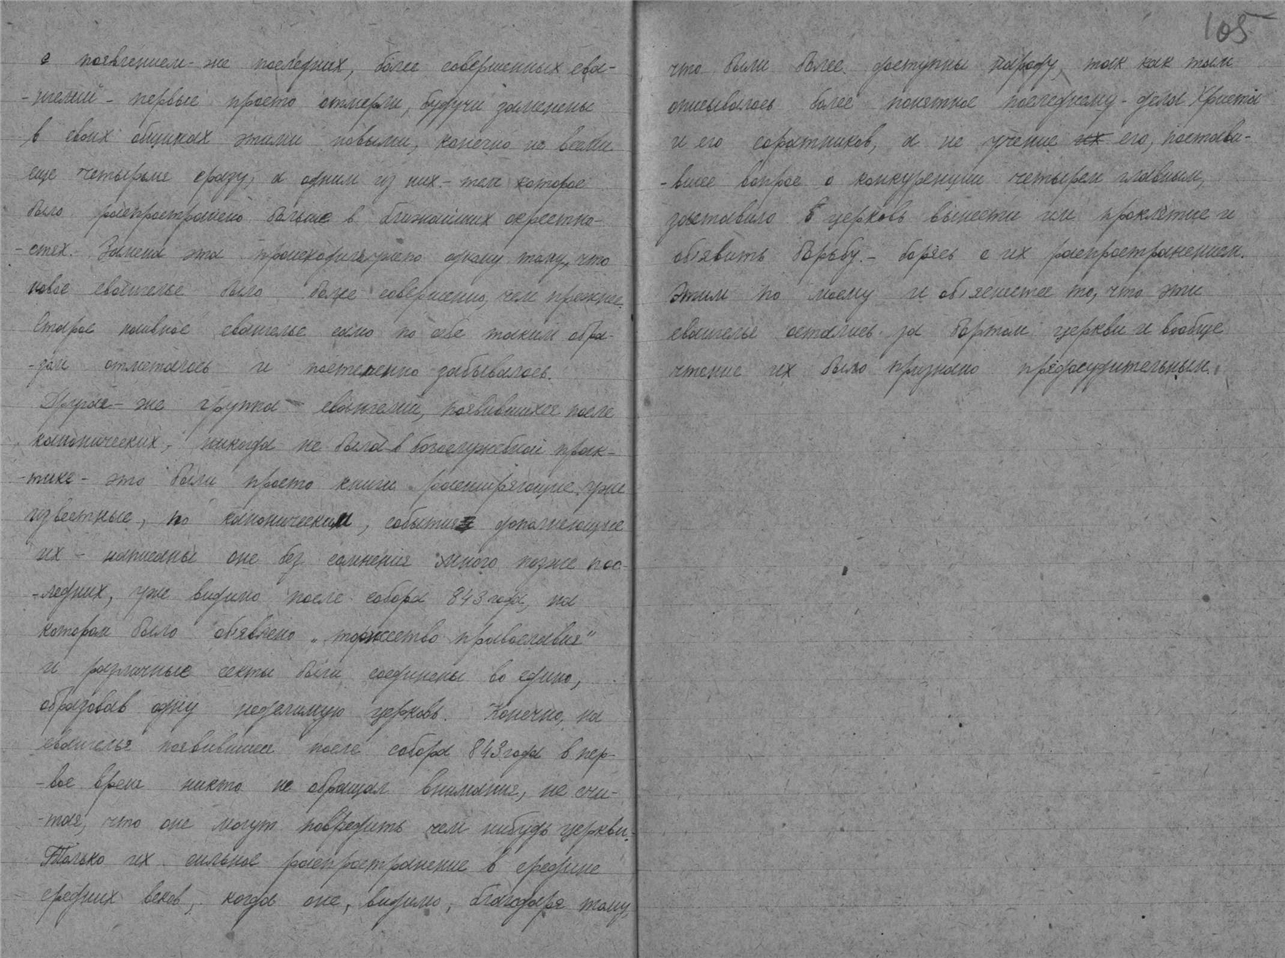 с появлением-же последних, более совершенных еван-
-гелий - первые просто отмерли, будучи заменены
в своих общинах этими новыми, конечно не всеми
еще четырьмя сразу, а одним из них - тем которое
было распространено больше в ближайших окрестно-
-стях. - Замена эта происходила благодаря тому, что
новое евангелье было более совершенно, чем прежнее.
Старое наивное евангелье само по себе таким обра-
-зом отметалось и постепенно забывалось.
Другая-же группа - евангелий, появившихся после
канонических, никогда не была в богослужебной прак-
-тике - это были просто книги расширяющие уже
известные, по каноническим, события дополняющие
их - написаны оне без сомнения много позже пос-
-ледних, уже видимо после собора 843 года, на
котором было обявлено „торжество православия"
и различные секты были соединены во едино,
образовав одну неделимую церковь. Конечно, на
евангелья появившиеся после собора 843 года в пер-
-вое время никто не обращал внимания, не счи-
-тая, что оне могут повредить чем нибудь церкви.
Только их сильное распространение в средине
средних веков, когда оне, видимо, благодаря тому,
105
что были более доступны народу, так как там
описывалось более понятное последнему - дела Христа
и его соратников, а не учение их его, постави-
-вшее вопрос о конкуренции четырем главным,
заставило церковь вынести им проклятие и
обявить борьбу. - борясь с их распространением.
Этим по моему и обясняется то, что эти
евангелья остались за бортом церкви и вообще
чтение их было признано предосудительным.